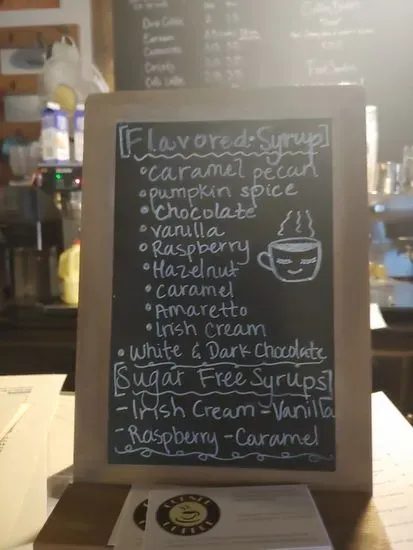 [Flavored Syrup]
• caramel pecan
• pumpkin spice
• Chocolate
• vanilla
• Raspberry
• Hazelnut
• caramel
• Amaretto
• Irish Cream
• White & Dark Chocolate
[Sugar Free Syrups]
- Irish Cream - Vanilla
- Raspberry - Caramel
COFFEE